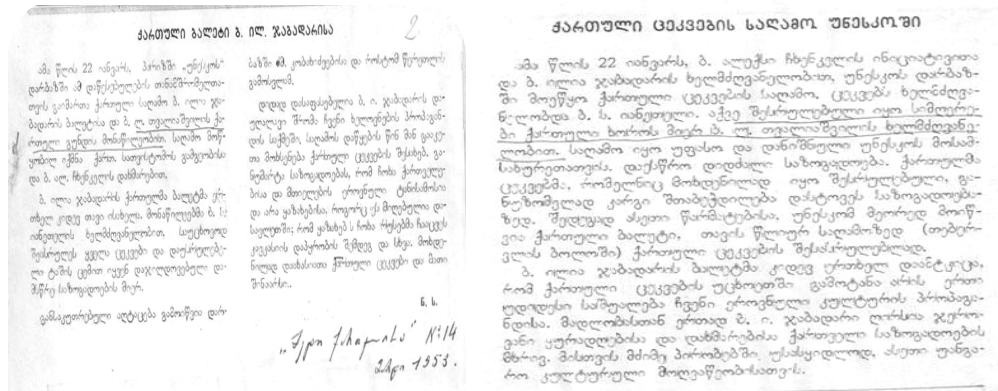 ქართული ბალეტი ბ. ილ. ჯაბადარისა
2
ამა წლის 22 იანვარს, პარიზში „უნესკოს“
დარბაზში ამ დაწესებულების თანამშრომელთა-
თვის გაიმართა ქართული საღამო ბ. ილია ჯა-
ბადარის ბალეტისა და ბ. ლ. თვალიაშვილის ქა-
რთული გუნდის მონაწილეობით. საღამო მოწ-
ყობილ იქმნა ქართ. სათვისტომოს გამგეობისა
და ბ. ალ. ჩხენკელის დახმარებით.
ბ. ილია ჯაბადარის ქართულმა ბალეტმა ერ-
თხელ კიდევ თავი ისახელა. მონაწილეებმა ბ. ს.
იანეთელის ხელმძღვანელობით, საუცხოვოდ
შეასრულეს ყველა ცეკვები და დაუსრულებე-
ლი ტაშის ცემით იყვენ დაჯილდოვებული და-
მსწრე საზოგადოების მიერ.
განსაკუთრებული აღტაცება გამოიწვია დარ-
ბაზში ემ. კობახიძეებისა და როსტომ წერეთლის
გამოსვლამ.
დიდად დასაფასებელია ბ. ი. ჯაბადარის და-
უღალავი შრომა ჩვენი ხელოვნების პროპაგან-
დის საქმეში, საღამოს დაწყების წინ მან გააკე-
თა მოხსენება ქართული ცეკვების შესახებ. გა-
ნუმარტა საზოგადოებას, რომ ჩოხა ქართველე-
ბისა და მთიელების ეროვნული ტანისამოსია
და არა ყაზახებისა, როგორც ეს მიღებულია და-
სავლეთში; რომ ყაზახებს ჩოხა რუსებმა ჩააცვეს
კავკასიის დაპყრობის შემდეგ და სხვა. მოხდე-
ნილად დაახასიათა ქართული ცეკვები და მათი
შინაარსი..
ნ. ს.
„ბედი ქართლისა“ № 14
მარტი 1953.
ქართული ცეკვების საღამო უნესკოში
ამა წლის 22 იანვარს, ბ. ალექსი ჩხენკელის ინიციატივითა
და ბ. ილია ჯაბადარის ხელმძღვანელობით, უნესკოს დარბაზ-
ში მოეწყო ქართული ცეკვების საღამო. ცეკვებს ხელმძღვა-
ნელობდა ბ. ს. იანეთელი. აქვე შესრულებული იყო სიმღერე-
ბი ქართული ხოროს მიერ ბ. ლ. თვალიაშვილის ხელმძღვანე-
ლობით. საღამო იყო უფასო და დანიშნული უნესკოს მოსამ-
სახურეთათვის. დაესწრო დიდძალი საზოგადოება. ქართულმა
ცეკვებმა, რომელნიც მოხდენილად იყო შესრულებული, გა-
ნუზომელად კარგი შთაბეჭდილება დასტოვეს საზოგადოება-
ზედ. შედეგად ასეთი წარმატებისა, უნესკომ მეორედ მოიწ-
ვია ქართული ბალეტი, თავის წლიურ საღამოზედ (თებერ-
ვლის ბოლოში) ქართული ცეკვების შესასრულებლად.
ბ. ილია ჯაბადარის ბალეტმა კიდევ ერთხელ დაამტკიცა,
რომ ქართული ცეკვების უცხოეთში გამოტანა არის ერთი
უდიდესი საშუალება ჩვენი ეროვნული კულტურის პროპაგა-
ნდისა. მადლობასთან ერთად ბ. ი. ჯაბადარი ღირსია ჯერო-
ვანი ყურადღებისა და დახმარებისა ქართველი საზოგადოების
მხრივ. მისთვის მძიმე პირობებში, უსასყიდლოდ, ასეთი უანგა-
რო კულტურული მოღვაწეობისათვის.